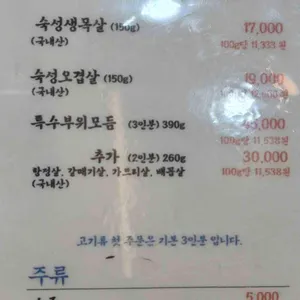 숙성생목살 (150g) 17,000
(국내산) 100g당 11,333 원
숙성오겹살 (150g) 19,000
(국내산) 100g당
특수부위모듬 (3인분) 390g 45,000
100g당 11,538원
추가 (2인분) 260g 30,000
항정살, 갈매기살, 가브리살, 배꼽살 100g당 11,538원
(국내산)
고기류 첫 주문은 기본 3인분 입니다.
주류
5,000